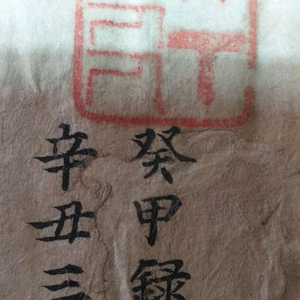 癸甲録
辛丑三